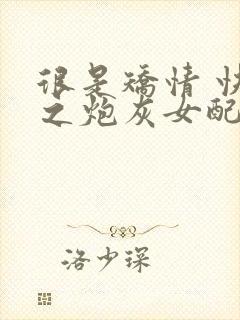 很是矯情 快
之炮灰女配
洛少琛